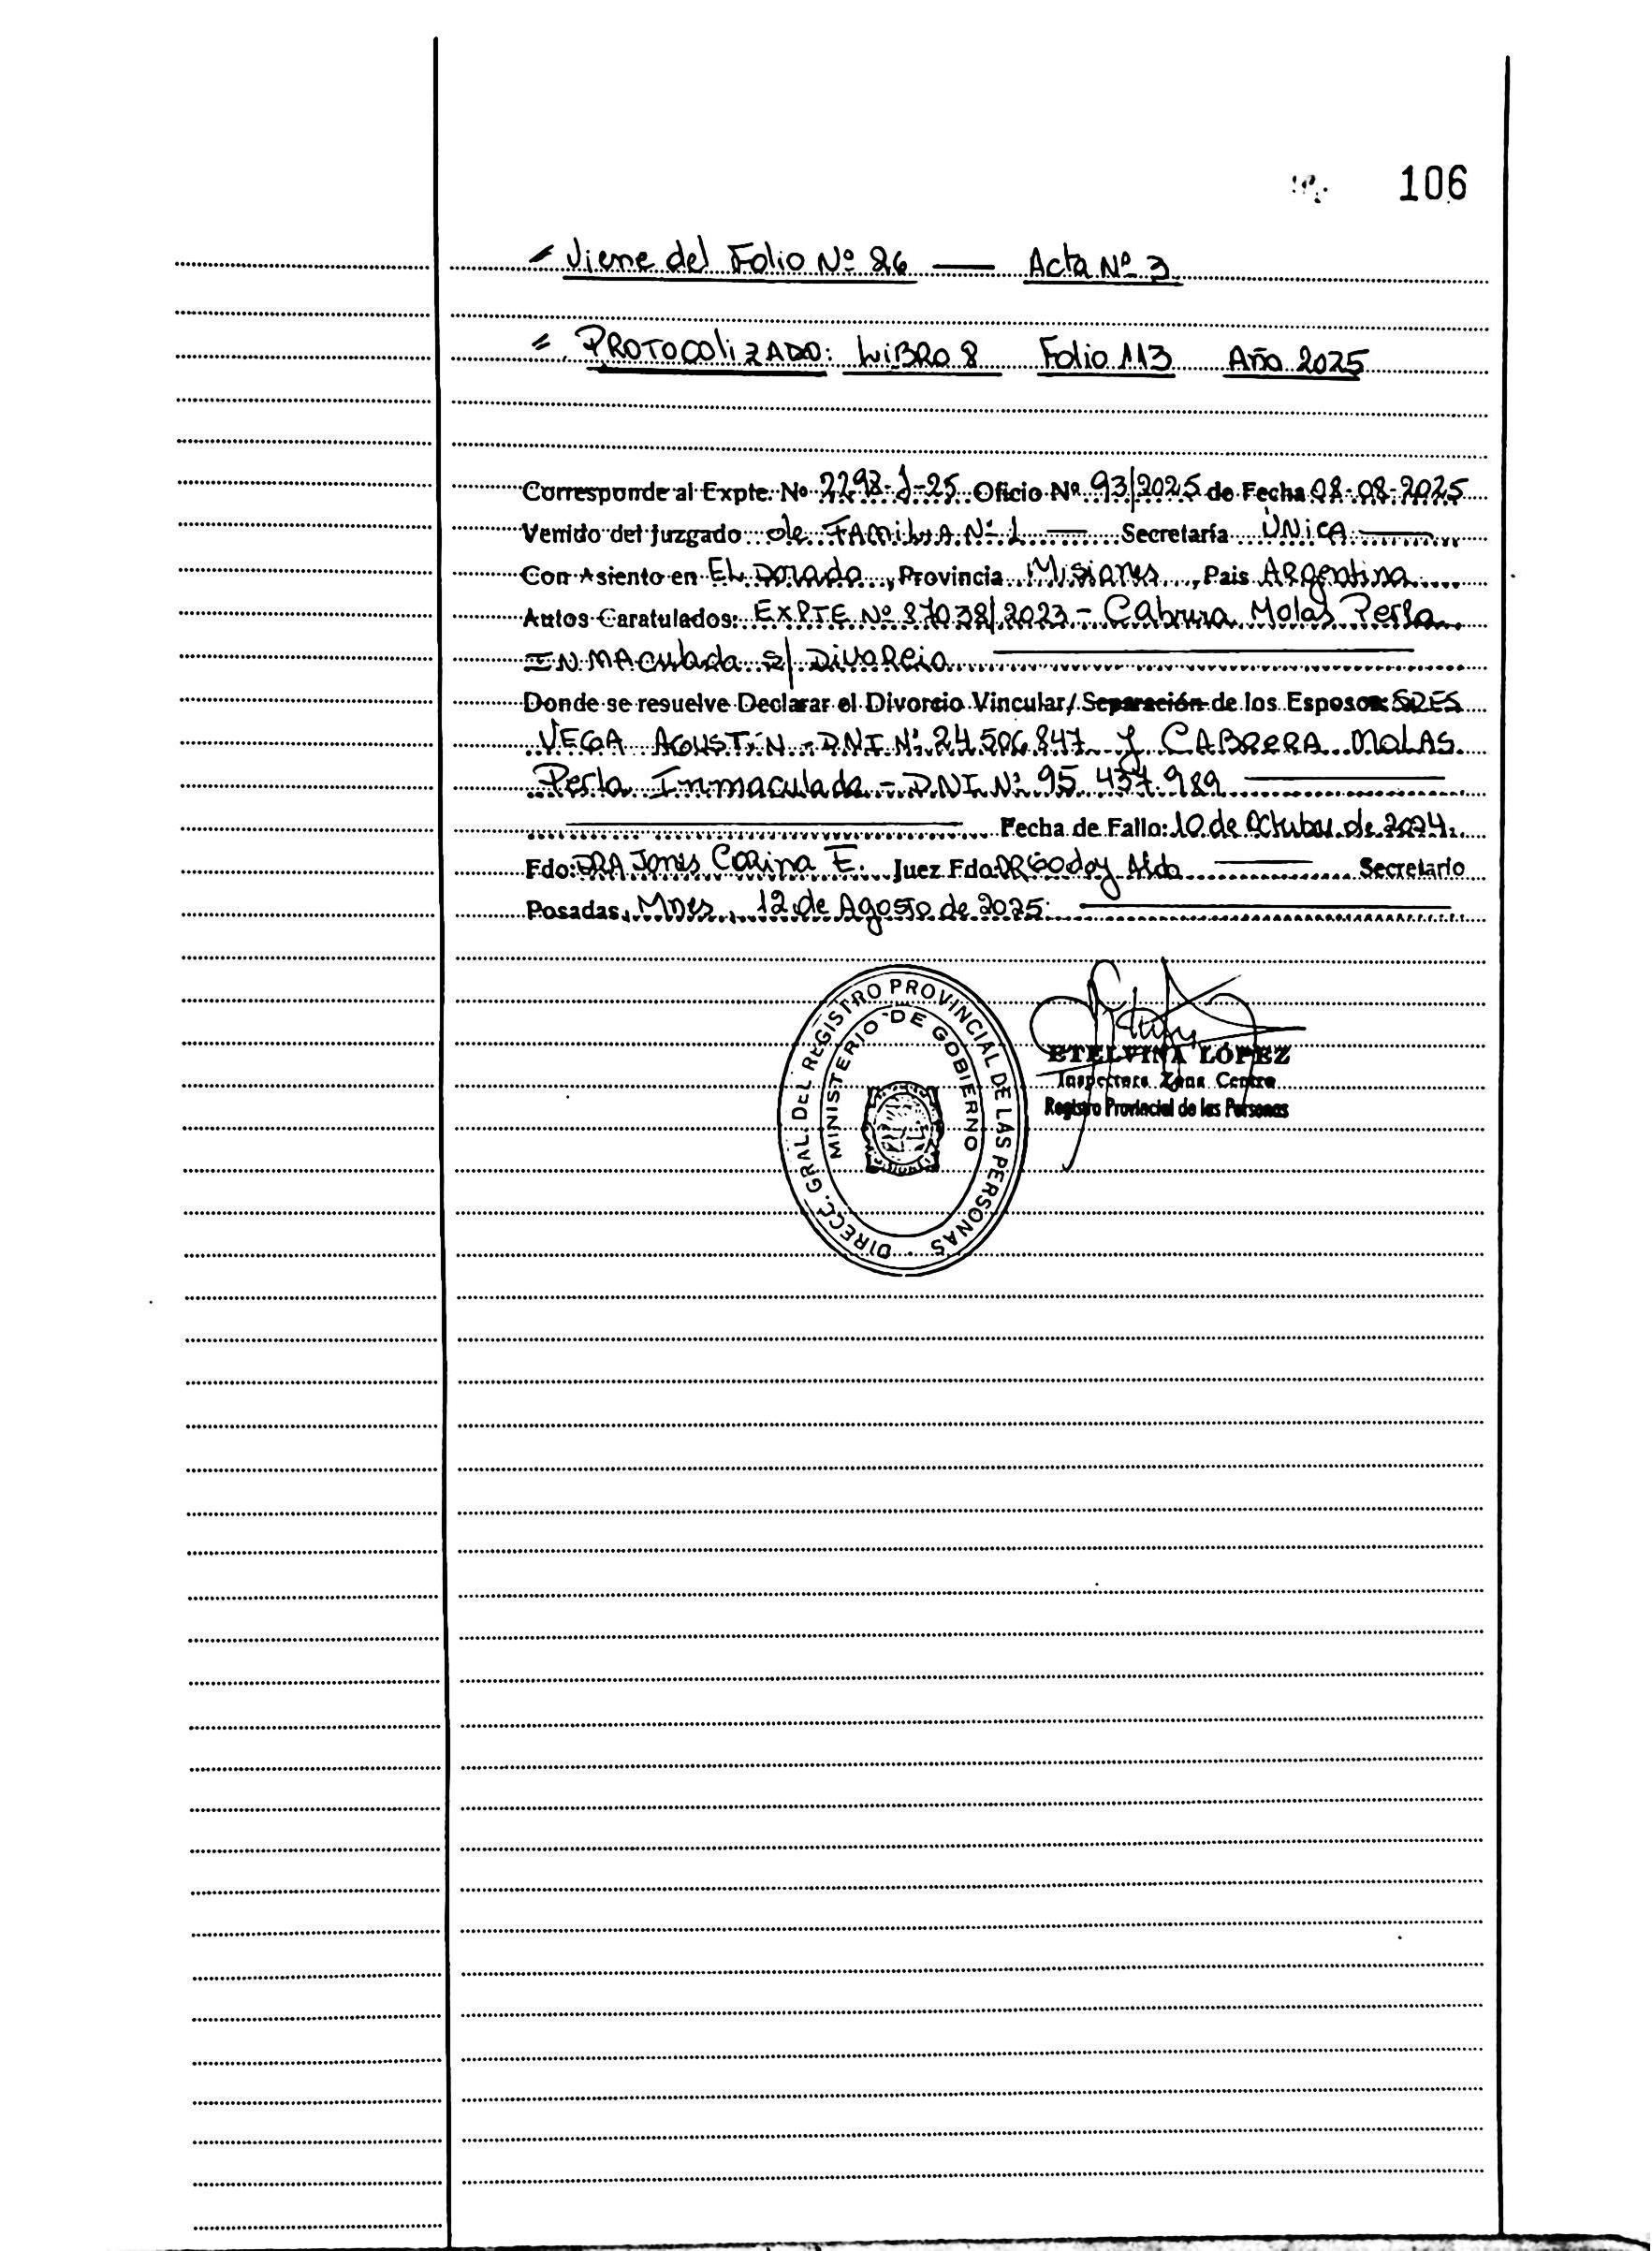 106
Viene del Folio Nº 26 — Acta Nº 3
PROTOCOLIZADO: LIBRO 8 Folio 113 Año 2025
Corresponde al Expte. Nº 2298-J-25 Oficio Nº 93/2025 de Fecha 08-08-2025
Venido del Juzgado de FAMILIA Nº 1 Secretaría ÚNICA
Con Asiento en EL Dorado, Provincia Misiones, Pais ARgentina
Autos Caratulados: EXPTE Nº 87038/2023 - Cabrera Molas Perla
INMAculada S/ DivoRcio
Donde se resuelve Declarar el Divorcio Vincular/ Separación de los Esposos: SRES
VEGA AGUSTÍN - DNI Nº 24.506.847 y CABRERA MOLAS
Perla Inmaculada - DNI Nº 95.437.989
Fecha de Fallo: 10 de Octubre de 2024.
Fdo: DRA Jones Carina E. Juez Fdo: DR Godoy Aldo Secretario
Posadas, Mnes, 12 de Agosto de 2025.
DIRECC. GRAL. DEL REGISTRO PROVINCIAL DE LAS PERSONAS
MINISTERIO DE GOBIERNO
ETELVINA LÓPEZ
Inspectora Zona Centro
Registro Provincial de las Personas